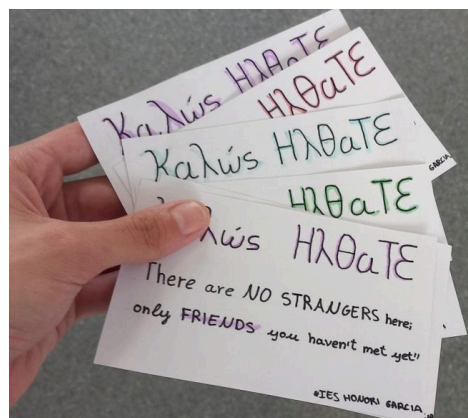 Καλώς ΗλθατΕ
ΗλθατΕ
Καλώς ΗλθατΕ
GARCIA
ΗλθατΕ
λώς ΗλθατΕ
There are NO STRANGERS here;
only FRIENDS you haven't met yet"
#IES HONORI GARCIA